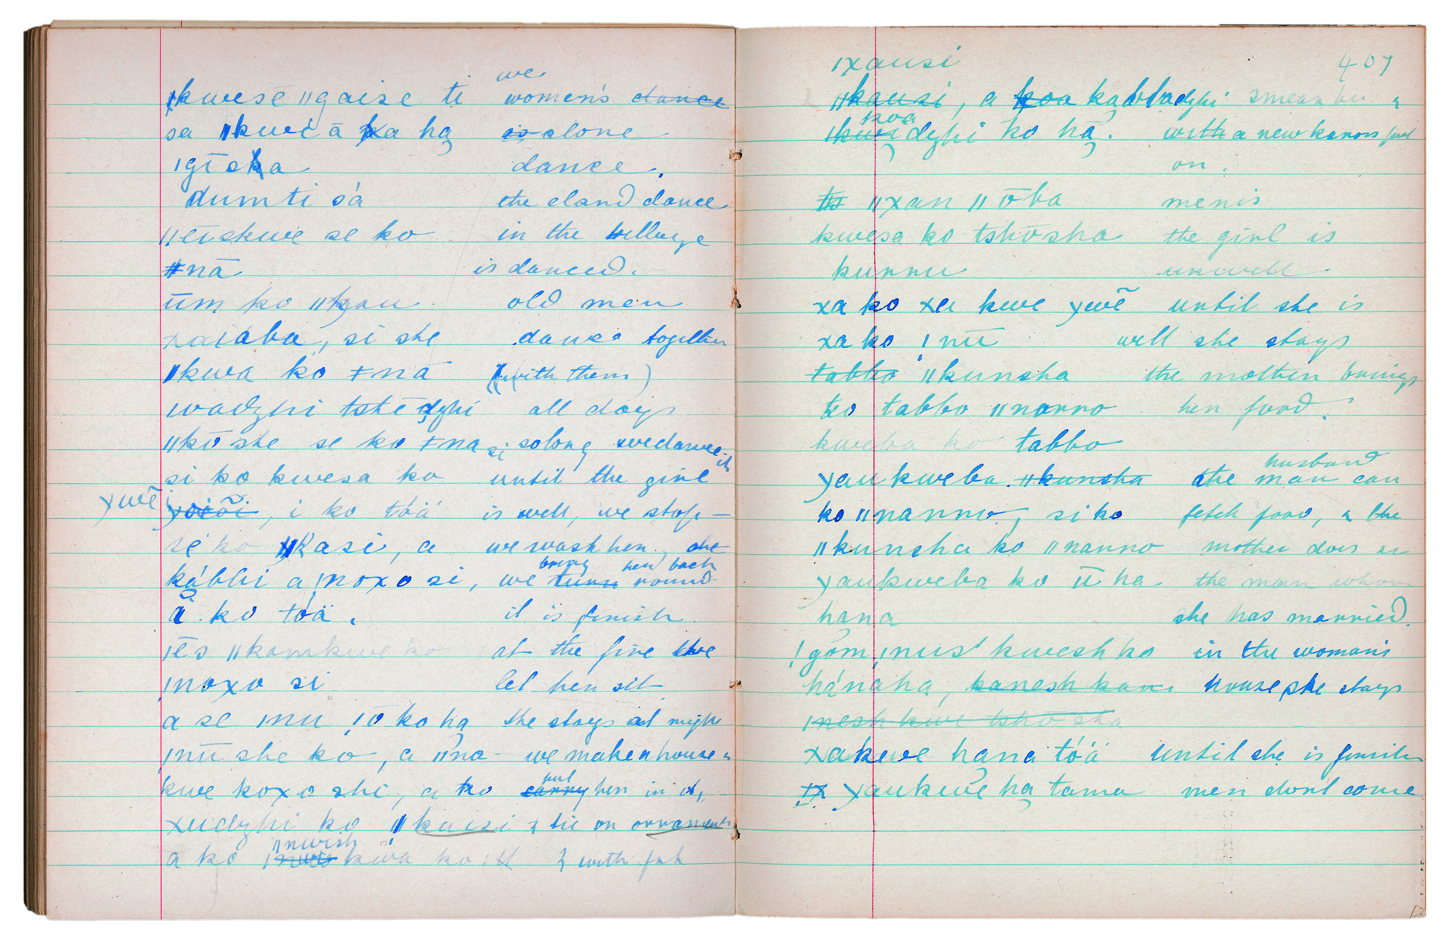 we
ǀkwesē ǁgaise ti women's dance
sa ǁkwéā xa hą is alone
ǀgīska dance.
dumti sá the eland dance
ǁēīskwe se ko in the village
ǂnā is danced.
ūm ko old men
xaiaba, si she dance together
ǁkwa ko ǂna (with them)
wadzhi tshēdzhi all days
ǁkōshe se ko ǂna si so long we dance it
si ko kwesa ko until the girl
ywē , i ko tóä is well, we stop
sé ko ǁkasi, a we wash her, she
bring her back
kábbi a ǀnoxo si, we turn round
ā ko tóä. it is finish
ǀēs ǁkamkwe ko at the fire we
ǀnoxo si let her sit
a se ǀnu, ǀō ko hą she stays at night
ǀnū she ko, a ǁna we make a house &
put
kwe koxo shi, a ko carry her in it,
xudzhi ko ǁkaisi & tie on ornaments
ǁnwish
a ko kwa ko & with fat
407
ǀxausi
ǁkausi, a koa smear her &
koa
dzhi ko hą. with a new kaross put
on.
ǁxan ǁōba menis
kwesa ko tshōsha the girl is
kunnu unwell.
xa ko xu kwe ywē until she is
xa ko ǀnū well she stays
tabbo ǁkunsha the mother brings
ko tabbo ǁnanno her food.
kweba ko tabbo
husband
yaukweba ǁkunsha the man can
ko ǁnanno, si ko fetch food, & the
ǁkunsha ko ǁnanno mother does so
yaukweba ko ū ha the man whom
hana she has married.
ǃgom ǀnus kwesh ko in the womans
hánaha, kanesh house she stays
ǀnesh kwe tshōsha
xakwe hana tóä until she is finish
yaukwe hą tama men dont come